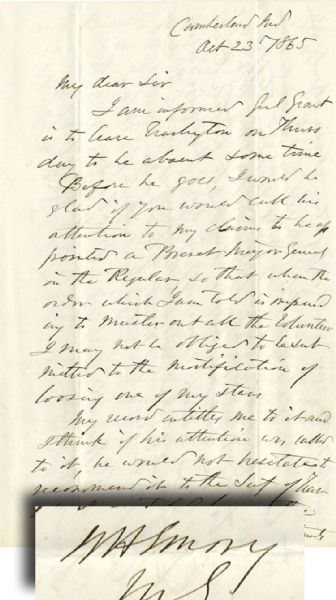 Cumberland Md
Oct 23d 1865
My dear Sir
I am informed Genl Grant
is to leave Washington on Thurs
day to be absent some time
Before he goes, I would be
glad if you would call his
attention to my claims to be ap
pointed a Brevet Major General
in the Regulars, so that when the
order which I am told is impend
ing to muster out all the Volunteers
I may not be obliged to be sub
mitted to the mortification of
loosing one of my stars
My record entitles me to it and
I think if his attention was called
to it, he would not hesitate to
recommend it to the Secy of War
WH Emory
M G